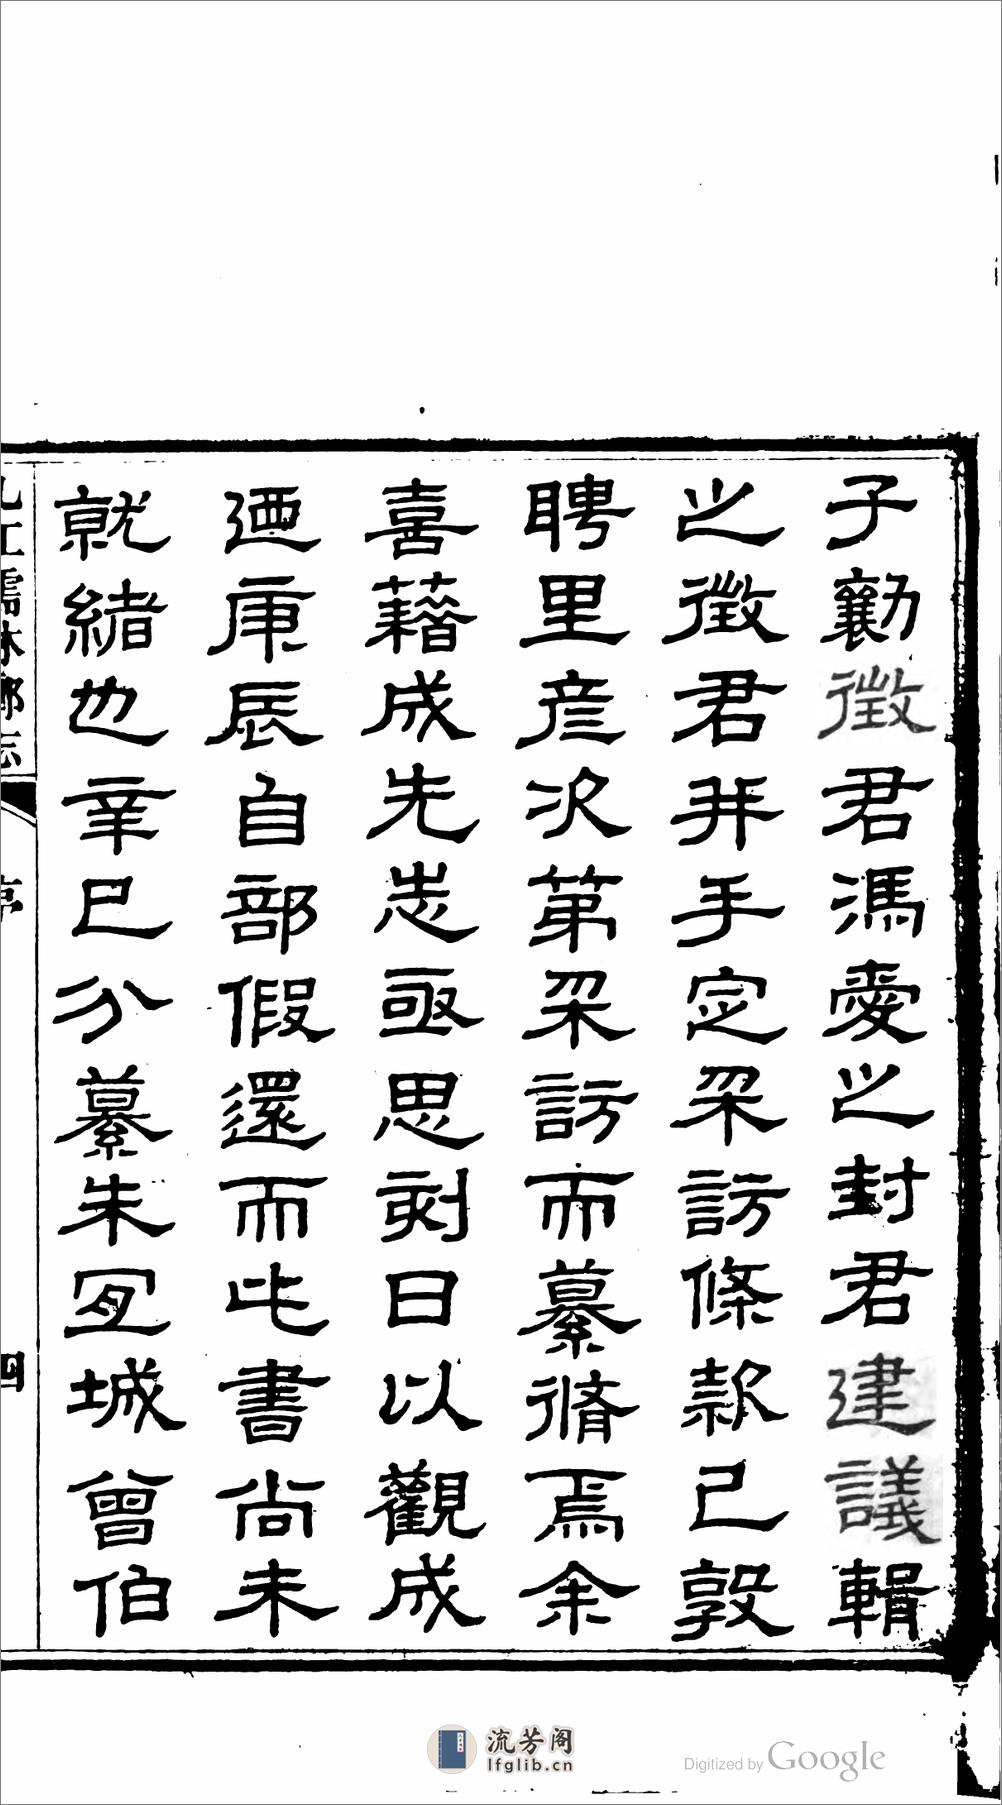 子勷徵君馮愛之封君建議輯
之徵君并手定采訪條款已敦
聘里彥次第采訪而纂脩焉余
喜藉成先志亟思刻日以觀成
迺庚辰自部假還而此書尚未
就緒也辛巳分纂朱宜城曾伯
九江儒林鄉志
序
四
流芳阁
lfglib.cn
Digitized by Google